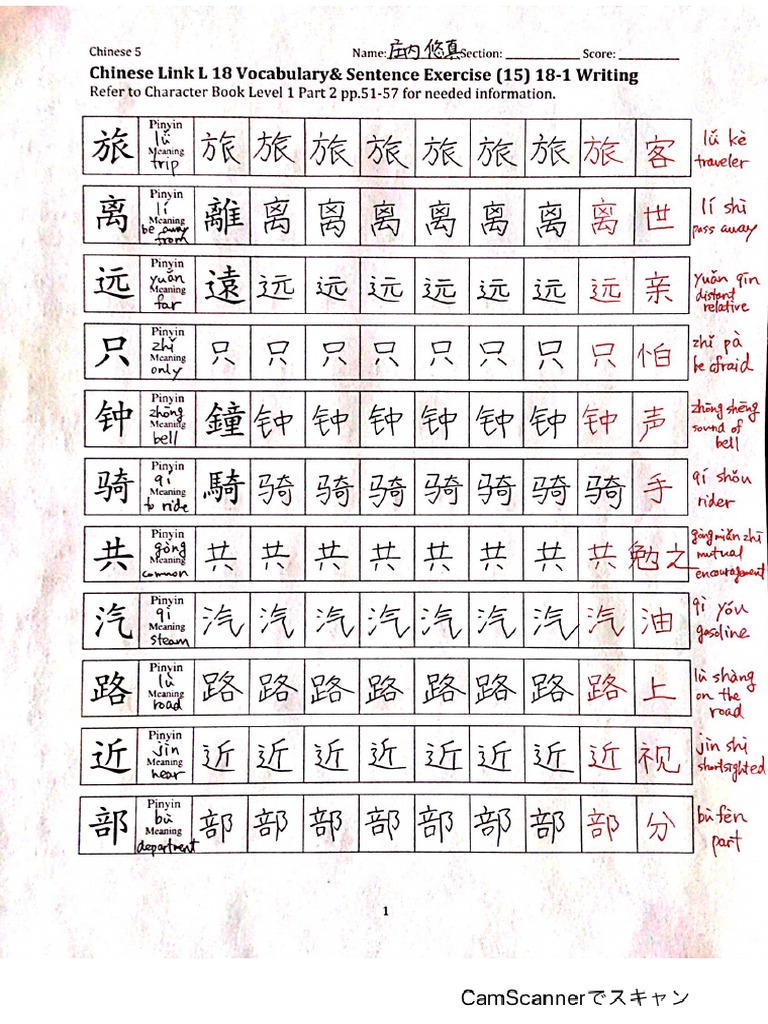 Chinese 5 Name: 庄内 悠真 Section: ____________ Score: __________
Chinese Link L 18 Vocabulary& Sentence Exercise (15) 18-1 Writing
Refer to Character Book Level 1 Part 2 pp.51-57 for needed information.
旅 Pinyin lǚ Meaning trip 旅 旅 旅 旅 旅 旅 旅 旅 客 lǚ kè traveler
离 Pinyin lí Meaning be away from 離 离 离 离 离 离 离 离 世 lí shì pass away
远 Pinyin yuǎn Meaning far 遠 远 远 远 远 远 远 远 亲 yuǎn qīn distant relative
只 Pinyin zhǐ Meaning only 只 只 只 只 只 只 只 只 怕 zhǐ pà be afraid
钟 Pinyin zhōng Meaning bell 鐘 钟 钟 钟 钟 钟 钟 钟 声 zhōng shēng sound of bell
骑 Pinyin qí Meaning to ride 騎 骑 骑 骑 骑 骑 骑 骑 手 qí shǒu rider
共 Pinyin gòng Meaning common 共 共 共 共 共 共 共 共 勉之 gòng miǎn zhī mutual encouragement
汽 Pinyin qì Meaning steam 汽 汽 汽 汽 汽 汽 汽 汽 油 qì yóu gasoline
路 Pinyin lù Meaning road 路 路 路 路 路 路 路 路 上 lù shàng on the road
近 Pinyin jìn Meaning near 近 近 近 近 近 近 近 近 视 jìn shì shortsighted
部 Pinyin bù Meaning department 部 部 部 部 部 部 部 部 分 bù fèn part
1
CamScannerでスキャン